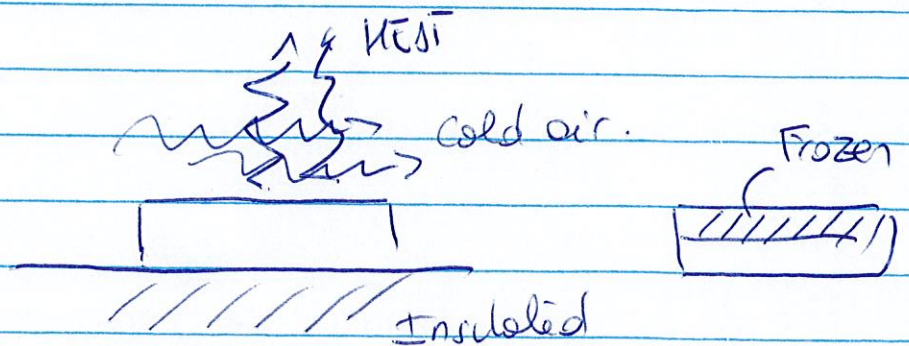 HEAT
cold air.
Frozen
Insulated